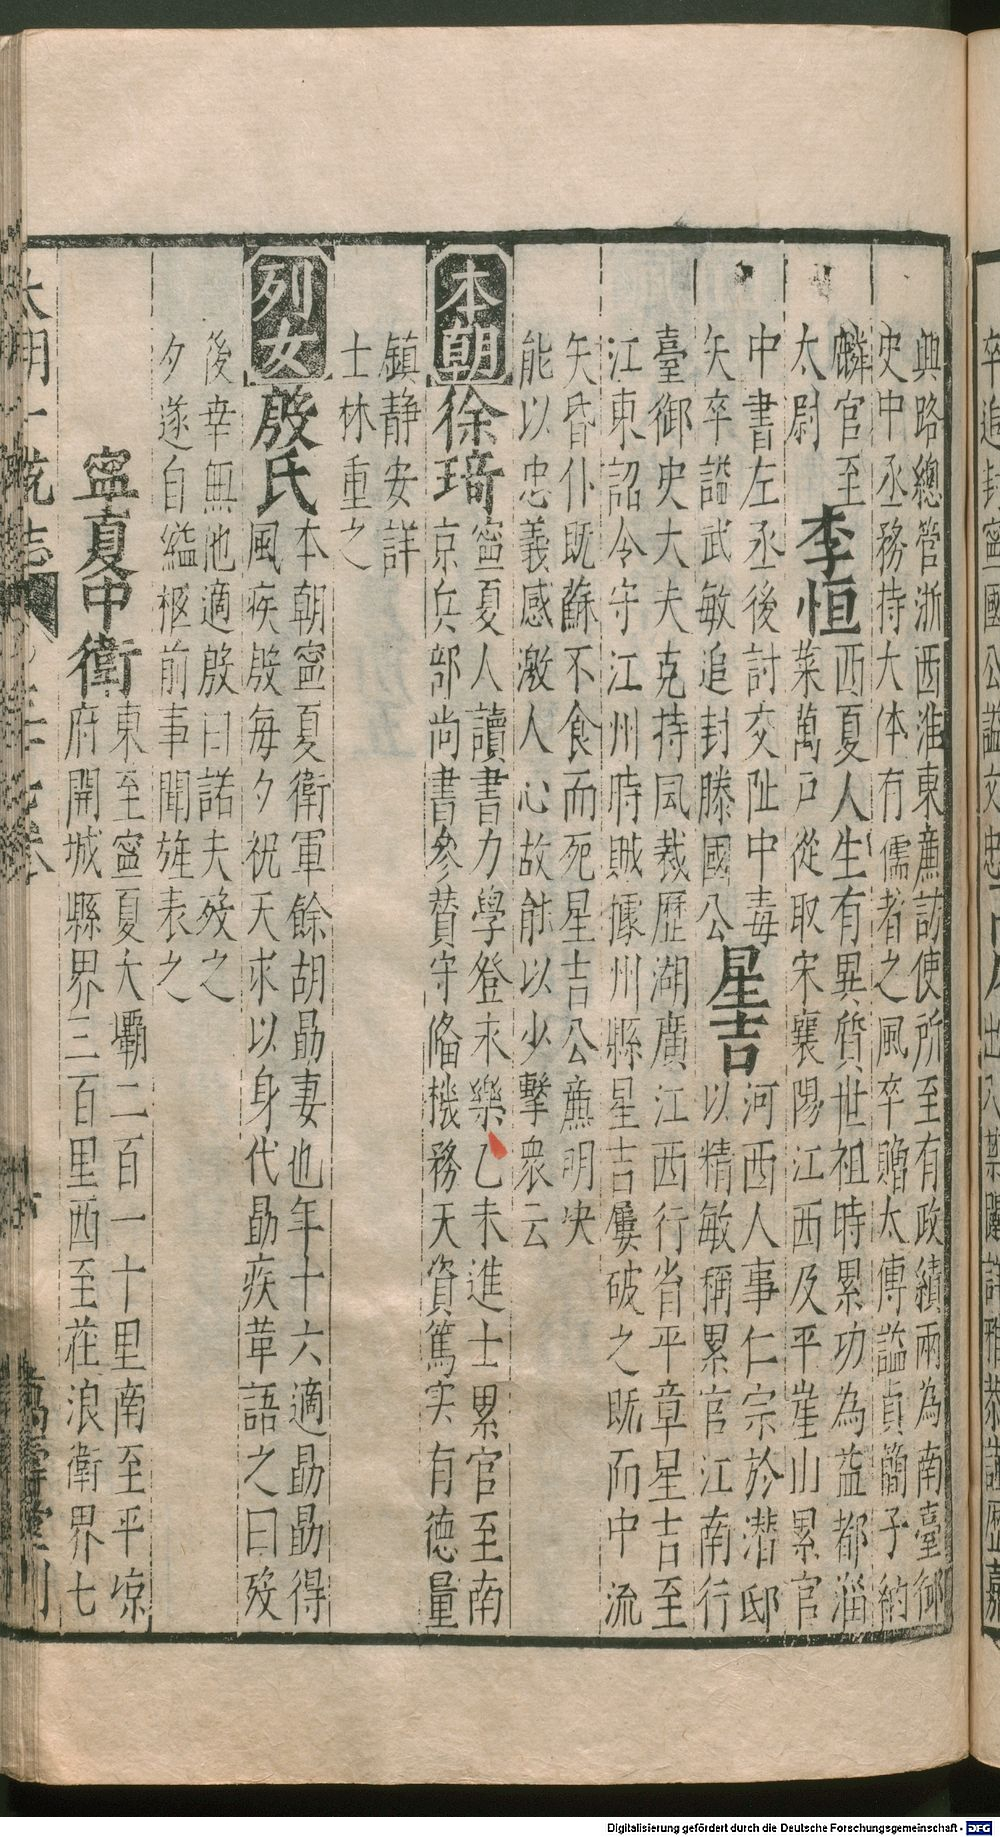 興路總管浙西淮東廉訪使所至有政績兩為南臺御
史中丞務持大体有儒者之風卒贈太傅謚貞簡子納
麟官至
太尉
李恒
西夏人生有異質世祖時累功為益都淄
萊萬戸從取宋襄陽江西及平崖山累官
中書左丞後討交阯中毒
矢卒謚武敏追封滕國公
星吉
河西人事仁宗於潛邸
以精敏稱累官江南行
臺御史大夫克持風裁歷湖廣江西行省平章星吉至
江東詔令守江州時賊據州縣星吉屢破之既而中流
矢昏仆既蘇不食而死星吉公廉明决
能以忠義感激人心故能以少擊衆云
本朝
徐琦
寧夏人讀書力學登永樂乙未進士累官至南
京兵部尚書參賛守俻機務天資篤实有德量
鎮静安詳
士林重之
列女
殷氏
本朝寧夏衛軍餘胡勗妻也年十六適勗勗得
風疾殷每夕祝天求以身代勗疾革語之曰歿
後幸無他適殷曰諾夫歿之
夕遂自縊柩前事聞旌表之
寧夏中衛
東至寧夏大壩二百一十里南至平凉
府開城縣界三百里西至莊浪衛界七
大明一統志
萬壽堂刊
Digitalisierung gefördert durch die Deutsche Forschungsgemeinschaft - DFG